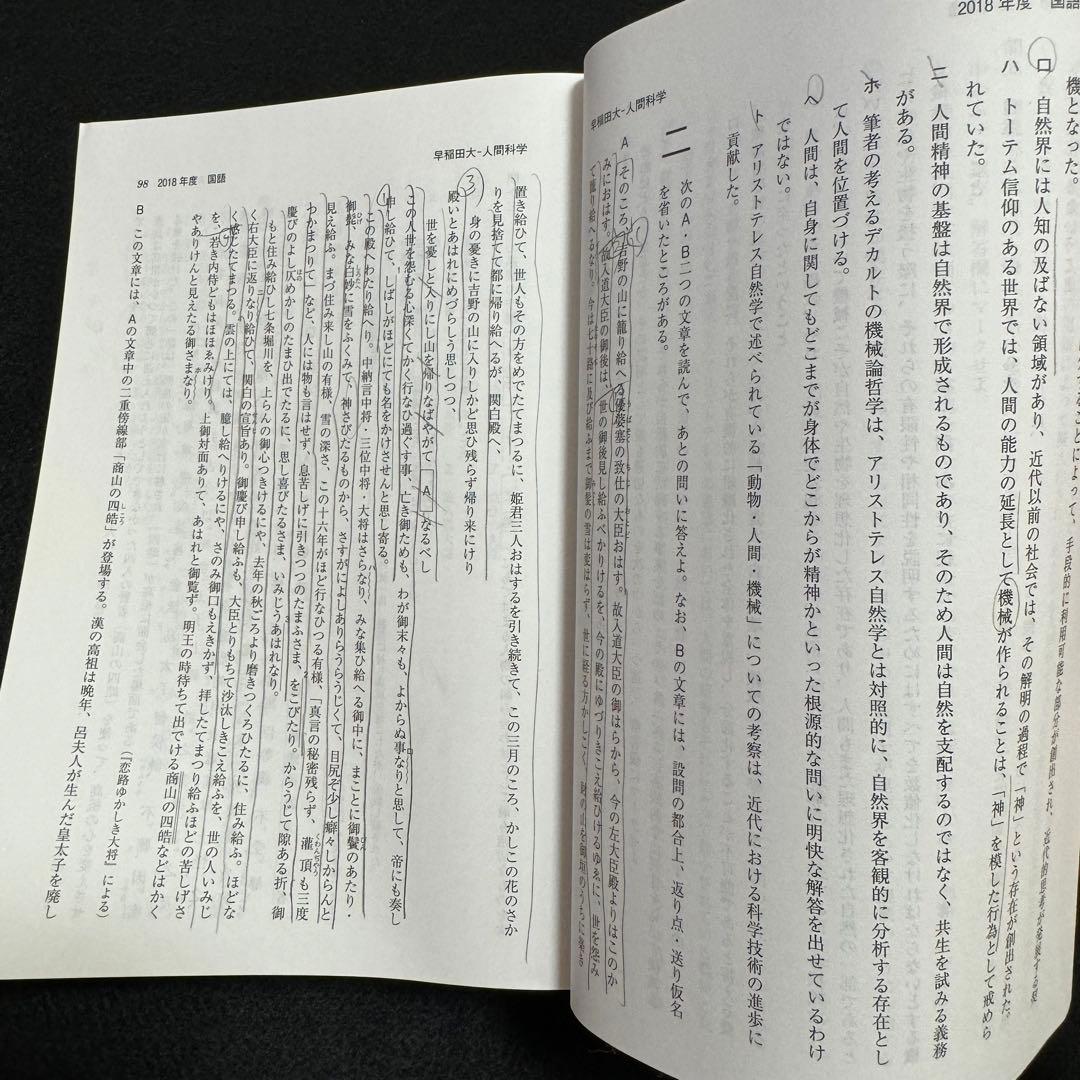 2018年度 国語
機となった。
ロ 自然界には人知の及ばない領域があり、近代以前の社会では、その解明の過程で「神」という存在が創出された。
ハ トーテム信仰のある世界では、人間の能力の延長として機械が作られることは、「神」を模した行為として戒めら
れていた。
ニ 人間精神の基盤は自然界で形成されるものであり、そのため人間は自然を支配するのではなく、共生を試みる義務
がある。
ホ 筆者の考えるデカルトの機械論哲学は、アリストテレス自然学とは対照的に、自然界を客観的に分析する存在とし
て人間を位置づける。
ヘ 人間は、自身に関してもどこまでが身体でどこからが精神かといった根源的な問いに明快な解答を出せているわけ
ではない。
ト アリストテレス自然学で述べられている「動物・人間・機械」についての考察は、近代における科学技術の進歩に
貢献した。
早稲田大-人間科学
二 次のA・B二つの文章を読んで、あとの問いに答えよ。なお、Bの文章には、設問の都合上、返り点・送り仮名
を省いたところがある。
A そのころ、吉野の山に籠り給へる優婆塞の致仕の大臣おはす。故入道大臣の御はらから、今の左大臣殿よりはこのか
みにおはす。故入道大臣の御後は、世の御後見し給ふべかりけるを、今の殿にゆづりきこえ給ひけるゆゑに、世を怨み
て籠り給へるなり。今は七十路に及び給ふまで御髪の雪は変はらず、世に経る方かしこく、財の山を御垣のうちに築き
早稲田大-人間科学
98 2018年度 国語
置き給ひて、世人もその方をめでたてまつるに、姫君三人おはするを引き続きて、この三月のころ、かしこの花のさか
りを見捨てて都に帰り給へるが、関白殿へ、
③ 身の憂きに吉野の山に入りしかど思ひ残らず帰り来にけり
殿いとあはれにめづらしう思しつつ、
世を憂しと入りにし山を帰りなばやがて A なるべし
この人世を怨むる心深くてかく行なひ過ぐす事、亡き御ためも、わが御末々も、よからぬ事なりと思して、帝にも奏し
申し給ひて、しばしがほどにても名をかけさせんと思し寄る。
この殿へわたり給へり。中納言中将・三位中将・大将はさらなり、みな集ひ給へる御中に、まことに御鬢のあたり・
御髭、みな白妙に雪をふくみて、神さびたるものから、さすがによしありらうらうじくて、目尻ぞ少し癖々しからんと
見え給ふ。まづ住み来し山の有様、雪の深さ、この十六年がほど行なひつる有様、「真言の秘密残らず、灌頂も三度
つかまつりて」など、人には物も言はせず、息苦しげに引きつつのたまふさま、をこびたり。からうじて隙ある折、御
慶びのよし仄めかしのたまひ出でたるに、思し喜びたるさま、いみじうあはれなり。
もと住み給ひし七条堀川を、上らんの御心つきけるにや、去年の秋ごろより磨きつくろひたるに、住み給ふ。ほどな
く右大臣に返りなり給ひて、関白の宣旨あり。御慶び申し給ふも、大臣とりもちて沙汰しきこえ給ふを、世の人いみじ
く感じたてまつる。雲の上にては、臆し給へりけるにや、さのみ御口もえきかず、拝したてまつり給ふほどの苦しげさ
を、若き内侍どもはほほゑみけり。上御対面ありて、あはれと御覧ず。明王の時待ちて出でける商山の四皓などはかく
やありけんと見えたる御さまなり。
（『恋路ゆかしき大将』による）
B この文章には、Aの文章中の二重傍線部「商山の四皓」が登場する。漢の高祖は晩年、呂夫人が生んだ皇太子を廃し